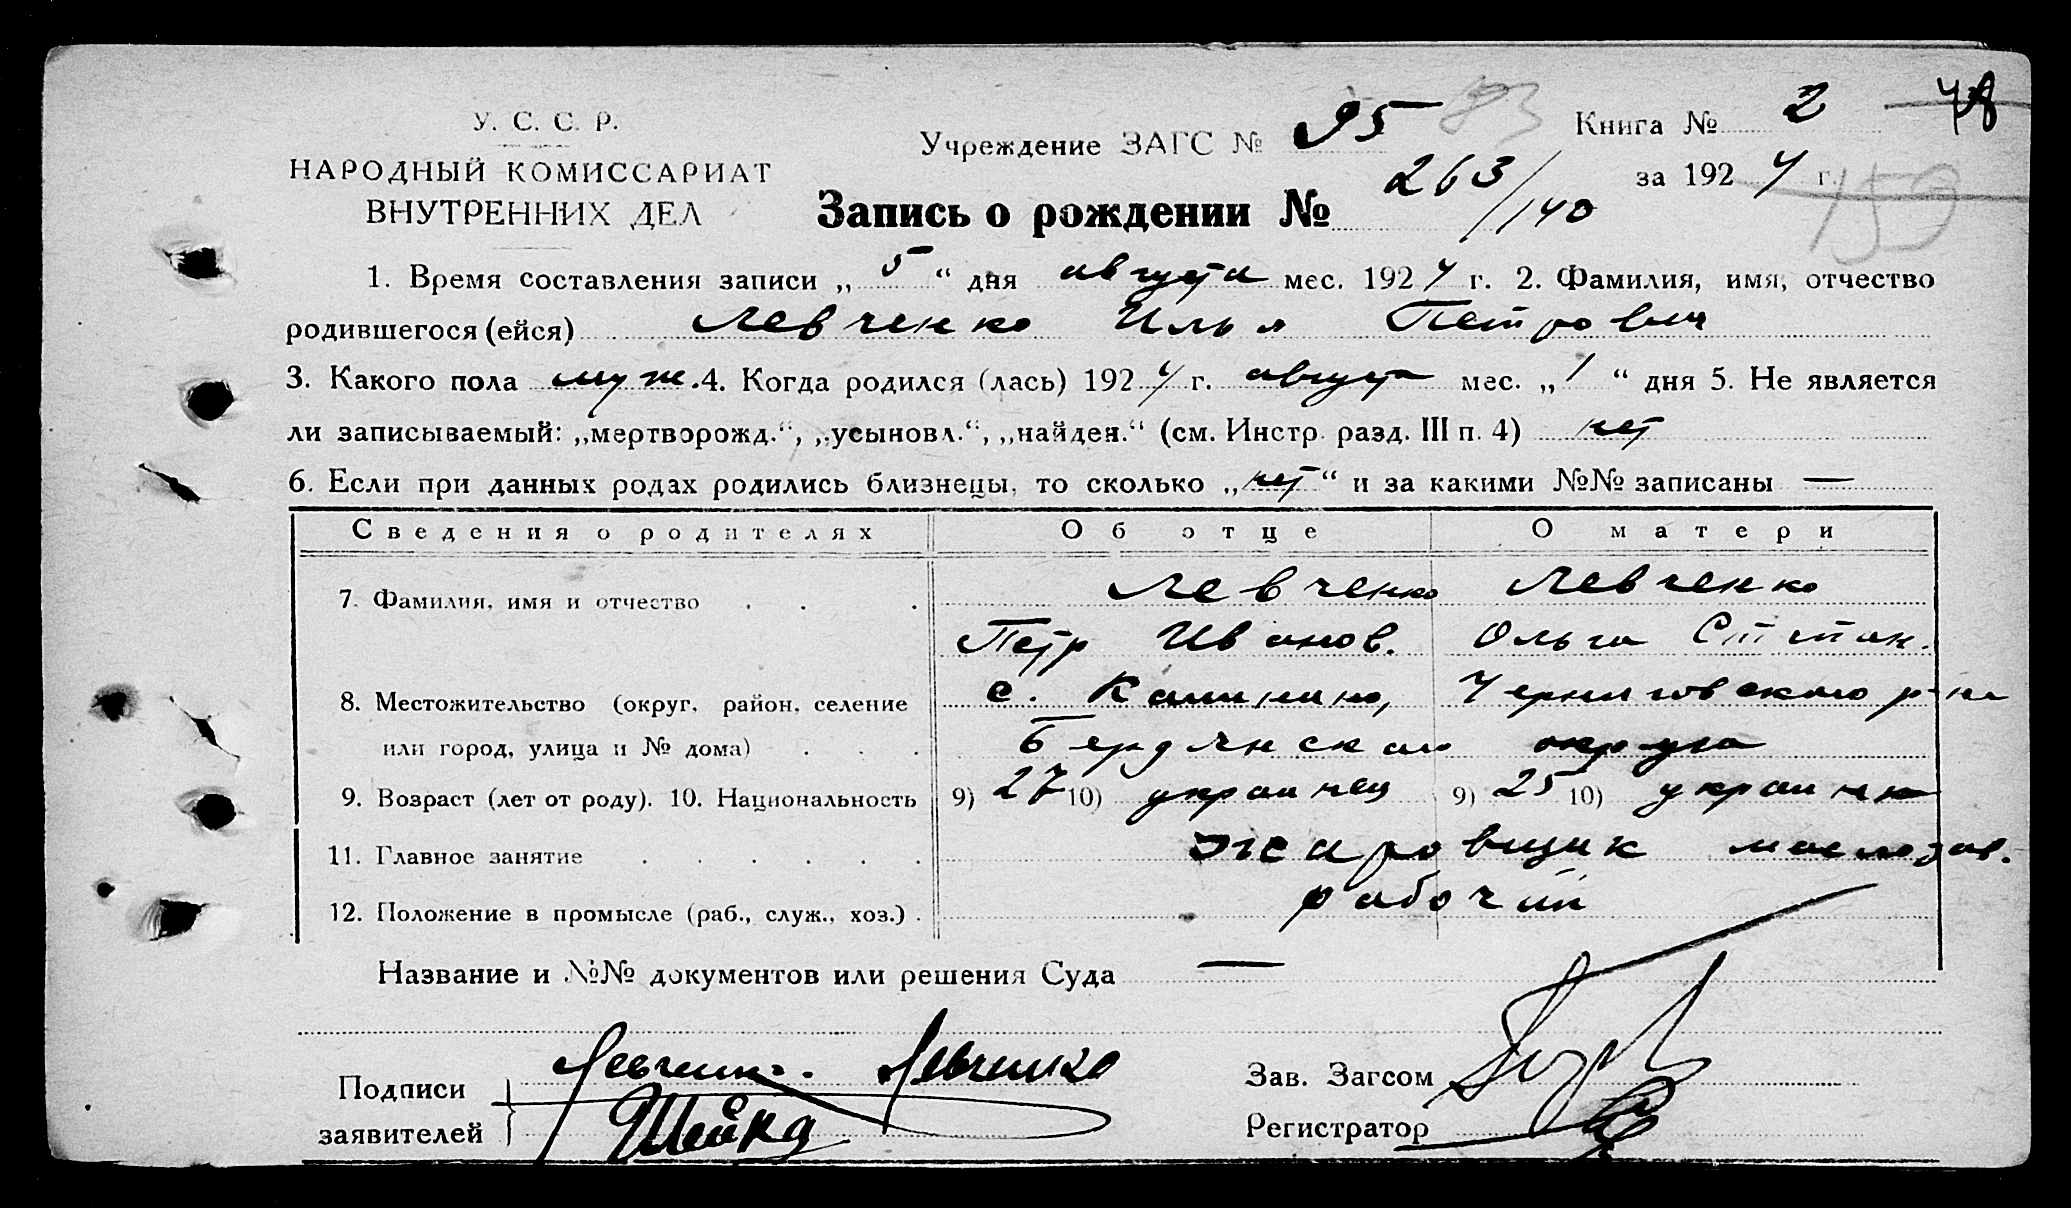 У. С. С. Р.
НАРОДНЫЙ КОМИССАРИАТ
ВНУТРЕННИХ ДЕЛ
Учреждение ЗАГС № 95 83
Книга № 2 78
за 1924 г. 153
Запись о рождении № 263/140
1. Время составления записи „5“ дня августа мес. 1924 г. 2. Фамилия, имя, отчество
родившегося (ейся) Левченко Илья Петрович
3. Какого пола муж. 4. Когда родился (лась) 1924 г. августа мес. „1“ дня 5. Не является
ли записываемый: „мертворожд.“, „усыновл.“, „найден.“ (см. Инстр. разд. III п. 4) нет
6. Если при данных родах родились близнецы, то сколько „нет“ и за какими №№ записаны —
Сведения о родителях Об отце О матери
7. Фамилия, имя и отчество . . . Левченко Левченко
Петр Иванов. Ольга Степан.
8. Местожительство (округ, район, селение с. Калинино, Черниговского р-на
или город, улица и № дома) . . . Бердянского округа
9. Возраст (лет от роду). 10. Национальность 9) 27 10) украинец 9) 25 10) украинка
11. Главное занятие . . . . . . жаровщик маслозав.
12. Положение в промысле (раб., служ., хоз.) . рабочий
Название и №№ документов или решения Суда —
Подписи
заявителей
Левченко. Левченко
Зав. Загсом
Регистратор